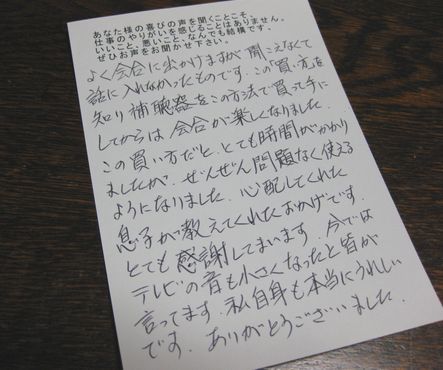 あなた様の喜びの声を聞くことこそ、
仕事のやりがいを感じることはありません。
いいこと、悪いこと、なんでも結構です。
ぜひお声をお聞かせ下さい。
よく会合に出かけますが、聞こえなくて
話に入れなかったものです。この「買い方」を
知り補聴器をこの方法で買って手に
してからは会合が楽しくなりました。
この買い方だと、とても時間がかかり
ましたが、ぜんぜん問題なく使える
ようになりました。心配してくれた
息子が教えてくれたおかげです。
とても感謝してまいます。今では
テレビの音も小さくなったと皆が
言ってます。私自身も本当にうれしい
です。ありがとうございました。